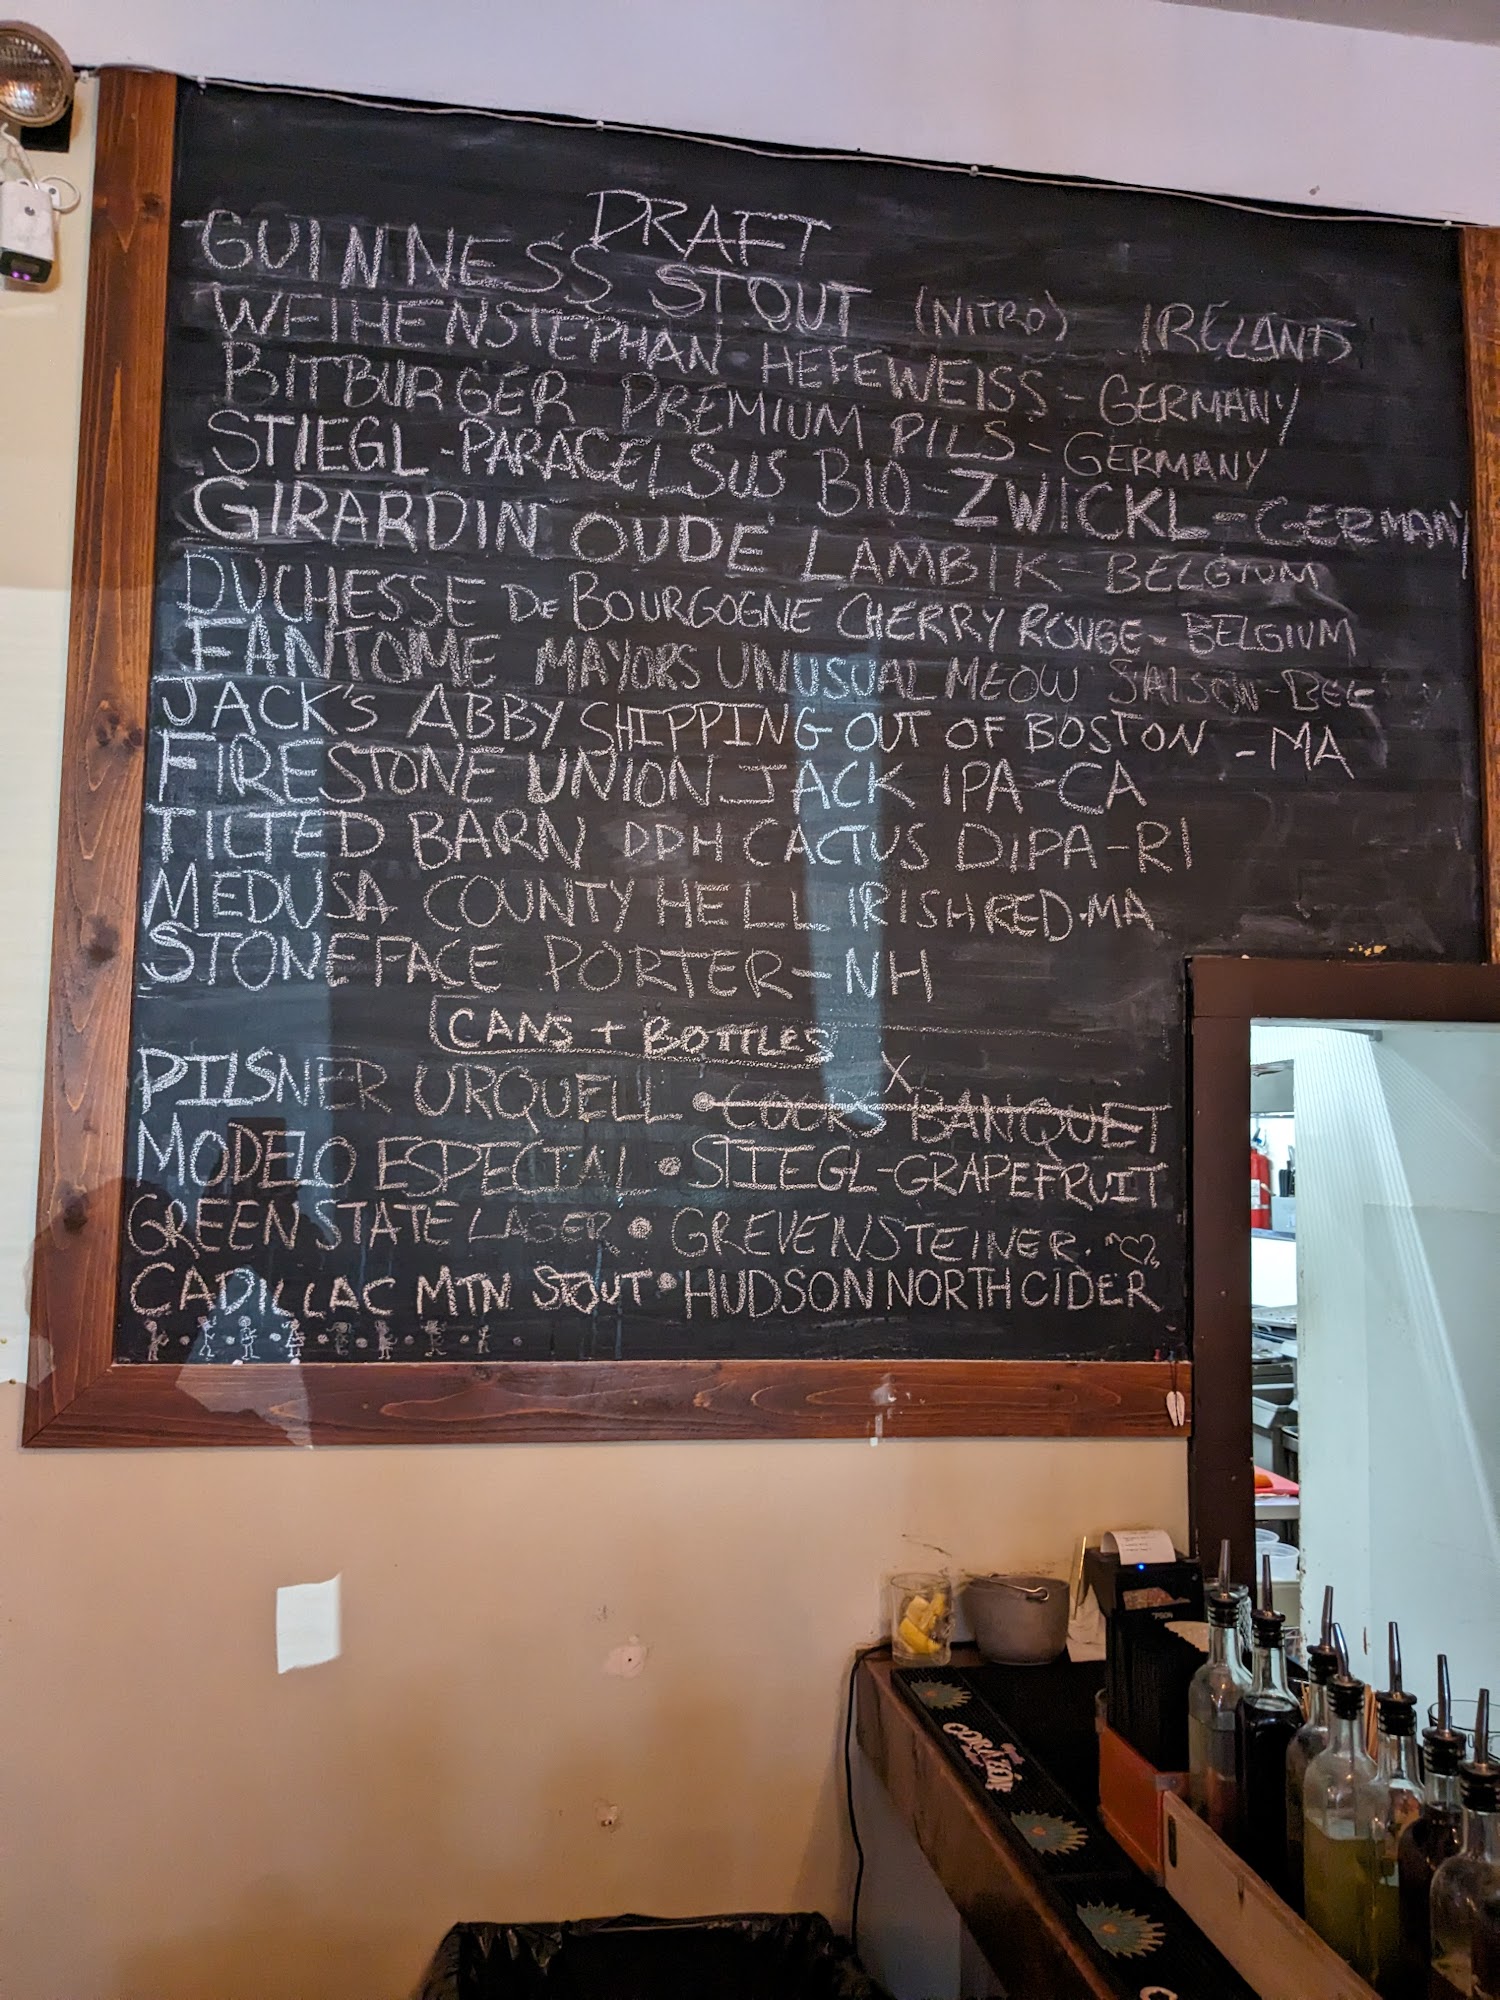 DRAFT
GUINNESS STOUT (NITRO) IRELAND
WEIHENSTEPHAN HEFEWEISS - GERMANY
BITBURGER PREMIUM PILS - GERMANY
STIEGL - PARACELSUS BIO - ZWICKL - GERMANY
GIRARDIN OUDE LAMBIK - BELGIUM
DUCHESSE DE BOURGOGNE CHERRY ROUGE - BELGIUM
FANTOME MAYORS UNUSUAL MEOW SAISON - BEL
JACK'S ABBY SHIPPING OUT OF BOSTON - MA
FIRESTONE UNION JACK IPA - CA
TILTED BARN DDH CACTUS DIPA - RI
MEDUSA COUNTY HELL IRISH RED - MA
STONEFACE PORTER - NH
CANS + BOTTLES
PILSNER URQUELL • COORS BANQUET X
MODELO ESPECIAL • STIEGL - GRAPEFRUIT
GREEN STATE LAGER • GREVENSTEINER.
CADILLAC MTN STOUT • HUDSON NORTH CIDER
CORAZÓN